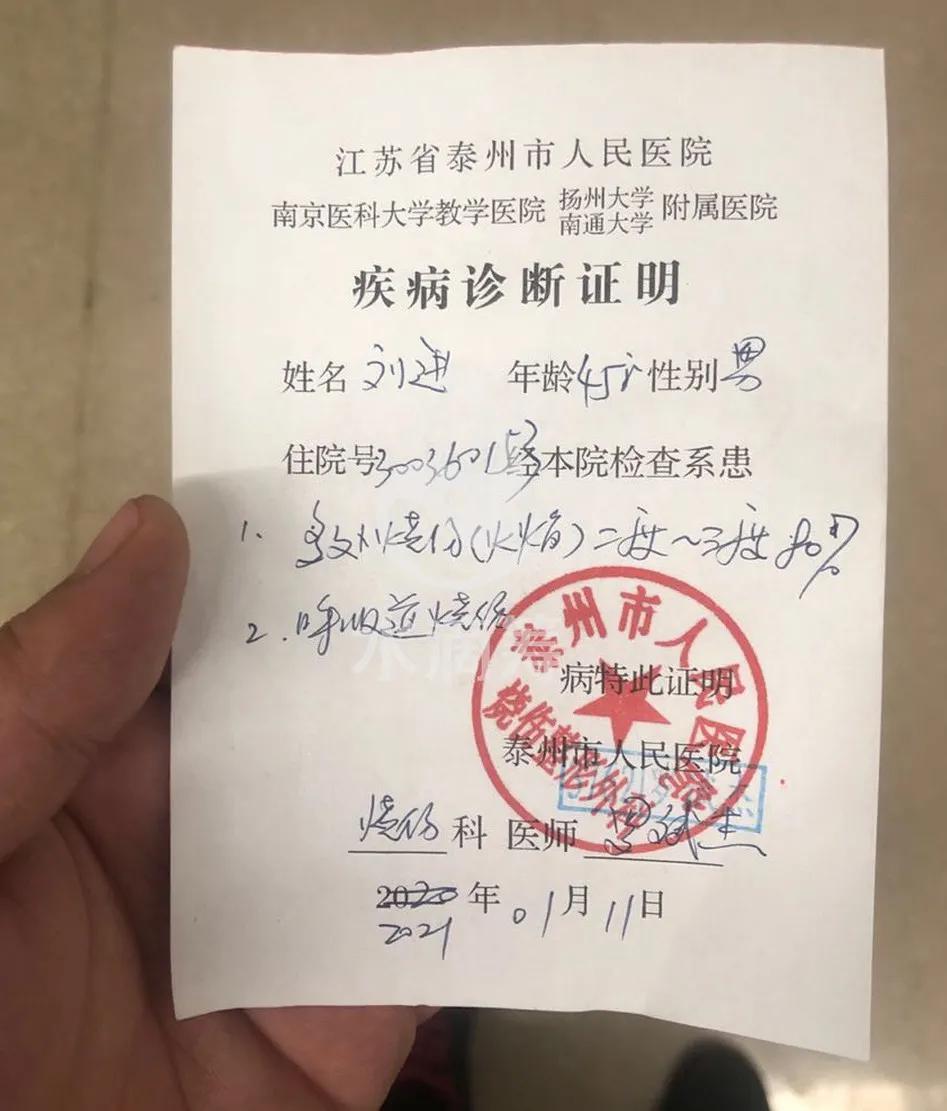 江苏省泰州市人民医院
南京医科大学教学医院 扬州大学 南通大学 附属医院
疾病诊断证明
姓名 刘进 年龄 45岁 性别 男
住院号3003601 经本院检查系患
1. 多处烧伤(火焰)二度~三度 80%
2. 呼吸道烧伤
水滴筹
病特此证明
泰州市人民医院
泰州市人民医院
烧伤整形外科
烧伤 科 医师
2020 年 01月 11日
2021